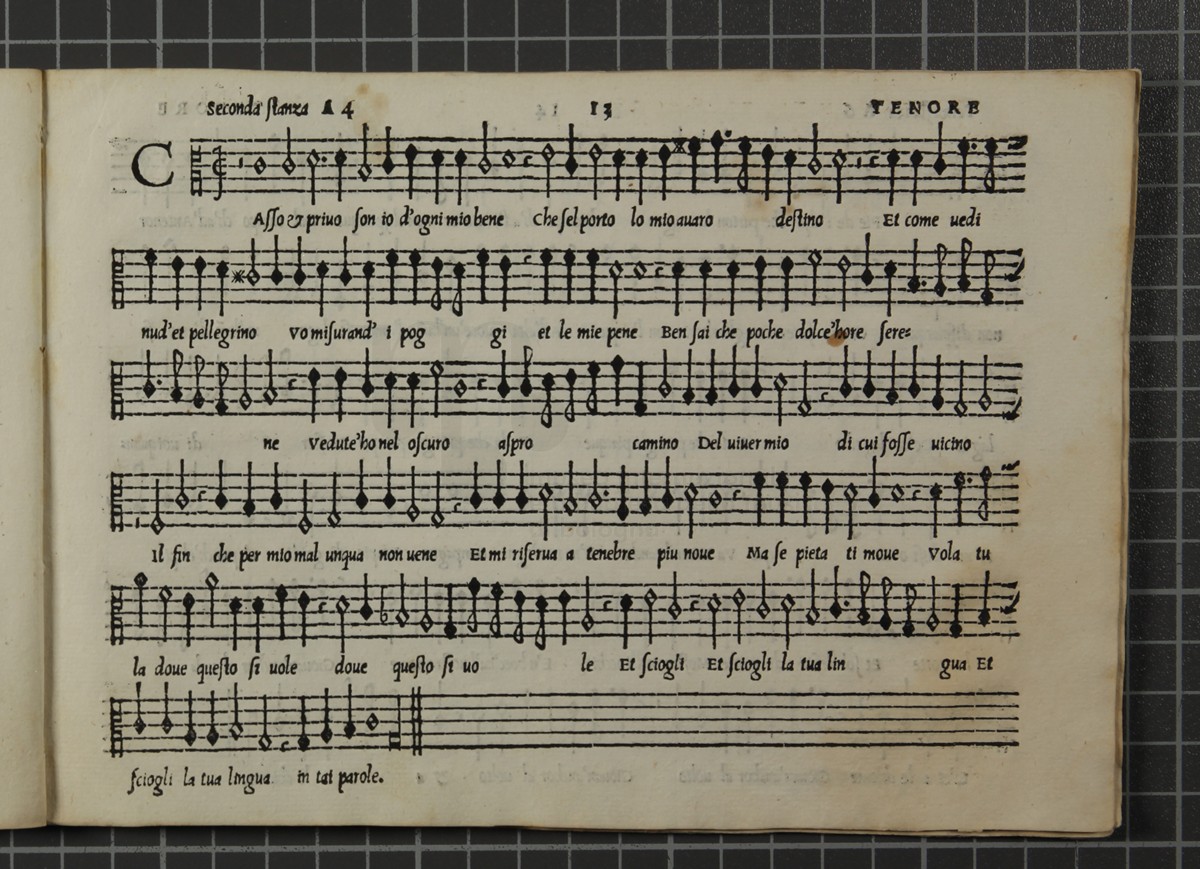 Seconda ſtanza A 4 13 TENORE
C Aſſo & priuo ſon io d'ogni mio bene Che ſel porto lo mio auaro deſtino Et come uedi
nud'et pellegrino Vo miſurand' i pog gi et le mie pene Ben ſai che poche dolce'hore ſere=
ne Vedute'ho nel oſcuro aſpro camino Del uiuer mio di cui foſſe uicino
Il fin che per mio mal unqua non uene Et mi riſerua a tenebre piu noue Ma ſe pieta ti moue Vola tu
la doue queſto ſi uole doue queſto ſi uo le Et ſciogli Et ſciogli la tua lin gua Et
ſciogli la tua lingua in tai parole.